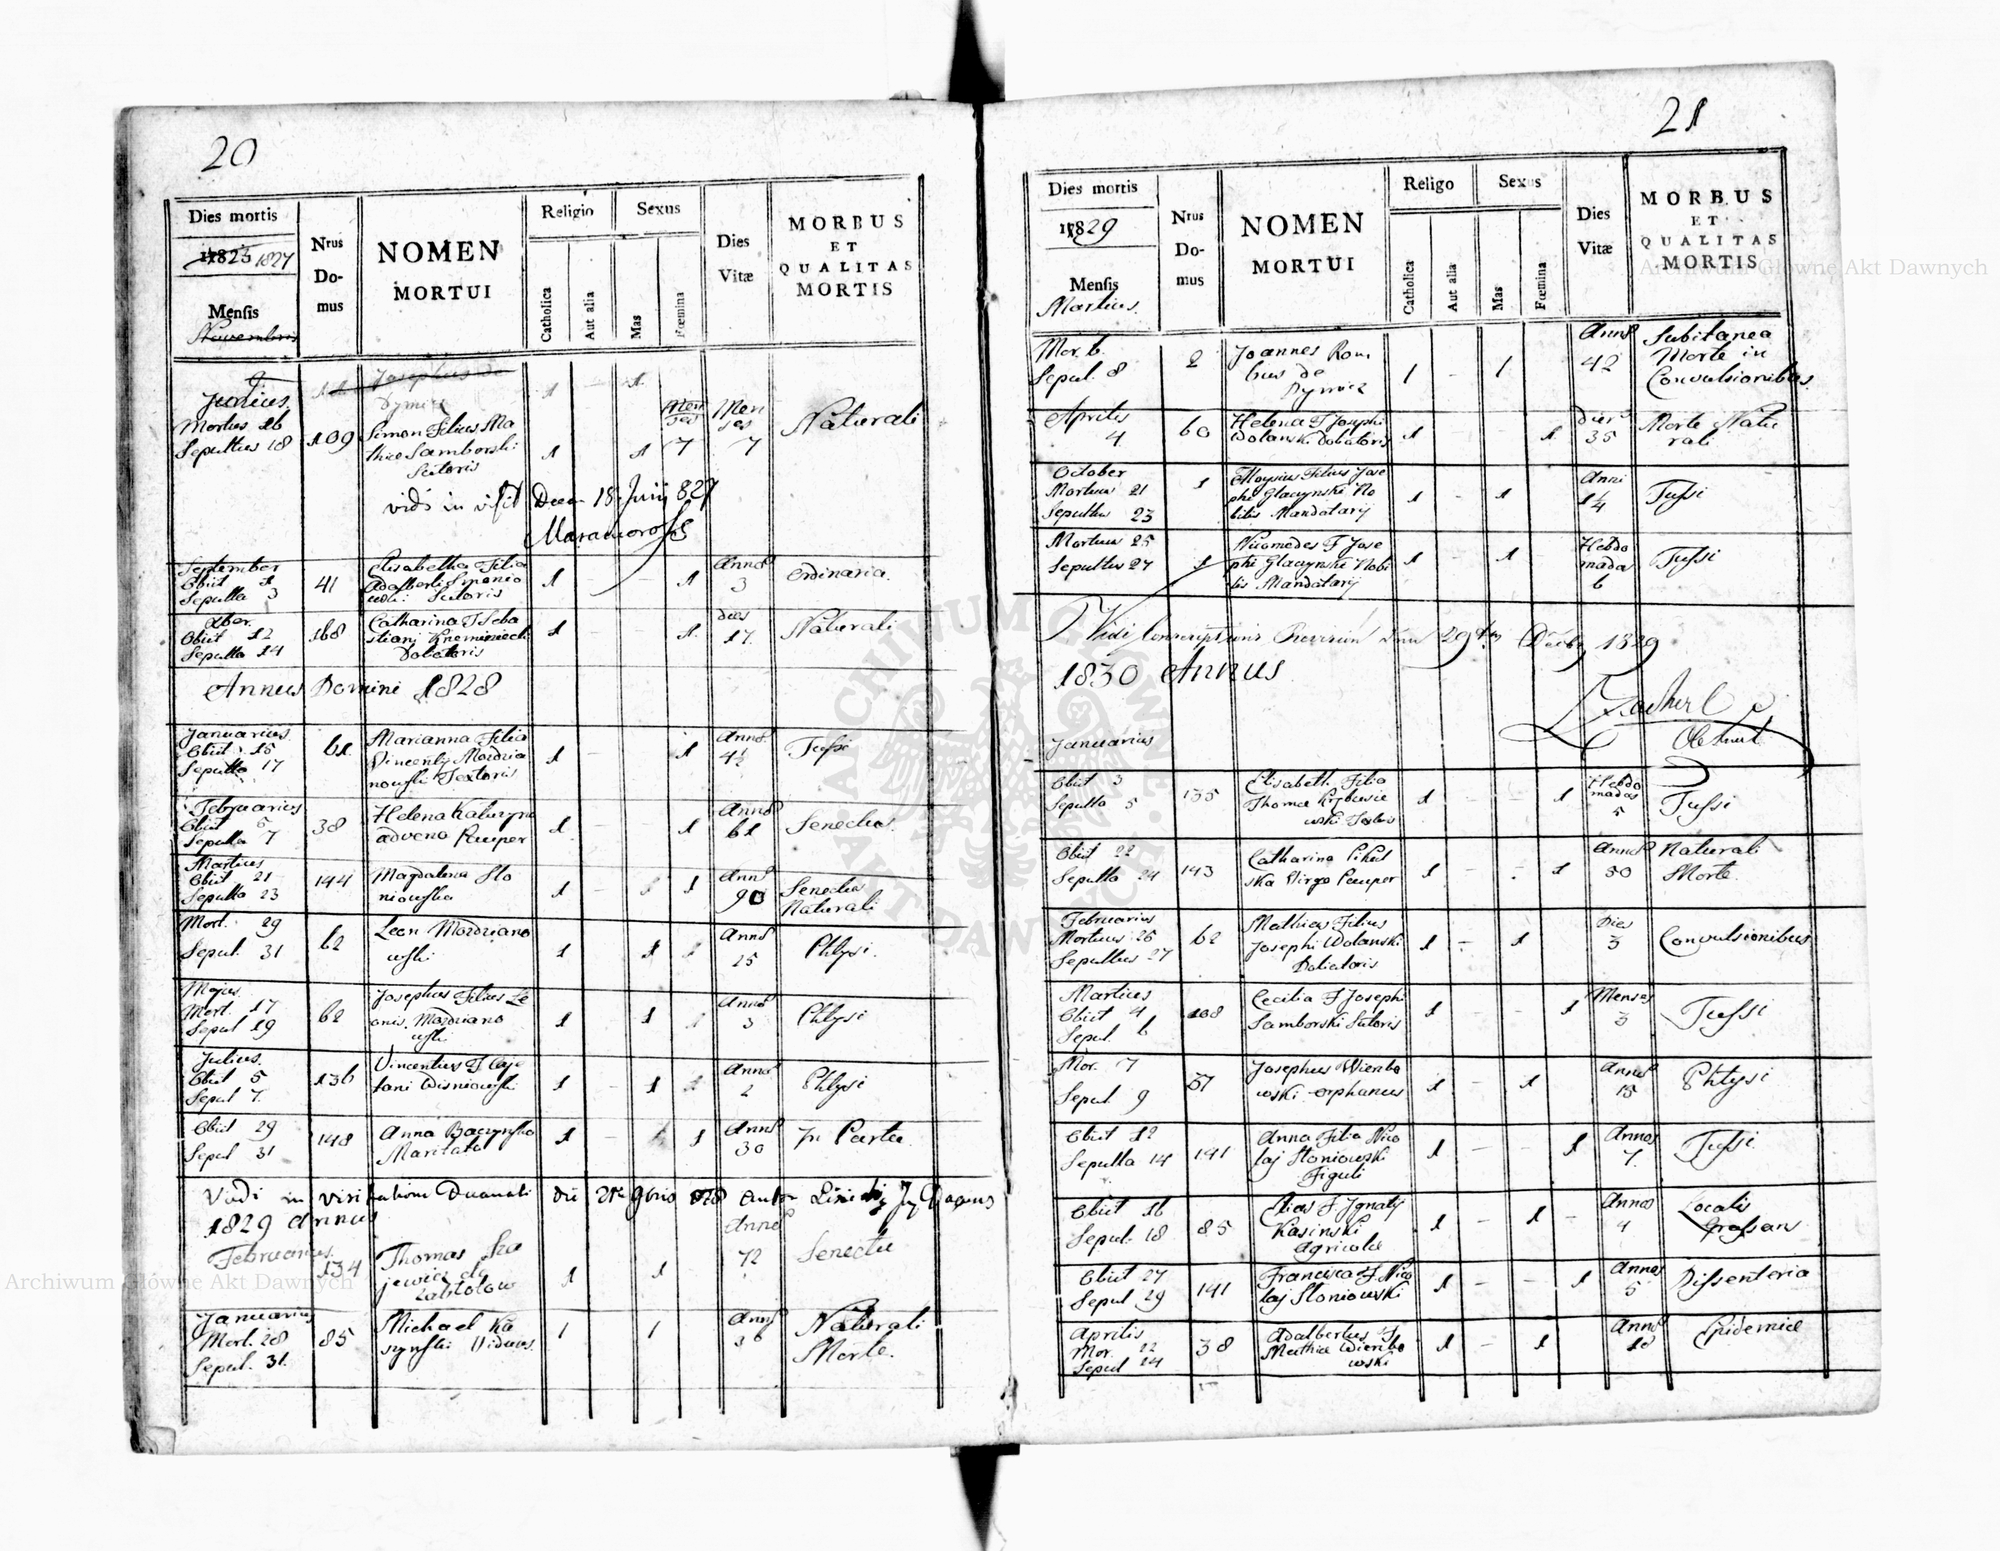 20
Dies mortis
1823 1827
Mensis
Novembris
Nrus Domus
NOMEN MORTUI
Religio
Catholica
Aut alia
Sexus
Mas
Fœmina
Dies Vitæ
MORBUS
ET
QUALITAS
MORTIS
Josephus de
Junius
Mortus 16
Sepultus 18
109
Simon Filius Ma
thiæ Samborski
Sutoris
1
1
Men
ses
7
Men
ses
7
Naturali
vidi in visit Decan 18 Junij 827
September
Obiit 1
Sepulta 3
41
Elisabetha Filia
Adalberti
Sutoris
1
-
1
Annos
3
Ordinaria
Xber
Obiit 12
Sepulta 14
168
Catharina F Seba
stiani
Doliatoris
1
-
1
dies
17
Naturali
Annus Domini 1828
Januarius
Obiit 15
Sepulta 17
61
Marianna Filia
Vincentij Mozdzia
nowski Textoris
1
-
1
Annos
4½
Tussi
Februarius
Obiit 5
Sepulta 7
38
Helena
advena Pauper
1
-
1
Annos
61
Senectus
Martius
Obiit 21
Sepulta 23
144
Magdalena Sło
niowska
1
-
1
Annos
90
Senectus
Naturali
Mort. 29
Sepul. 31
62
Leon Mozdziano
wski
1
1
Annos
25
Phtysi
Majus
Mort. 17
Sepul 19
62
Josephus Filius Le
onis Mozdziano
wski
1
1
Annos
3
Phtysi
Julius
Obiit 5
Sepul 7
136
Vincentius F Caje
tani Wisniowski
1
-
1
Annos
2
Phtysi
Obiit 29
Sepul 31
148
Anna Baczynska
Maritata
1
-
1
Annos
30
In Partu
Vidi in visitatione Decanali die
1829 Annus
Februarius
134
Thomas
1
1
Annos
72
Senectu
Januarius
Mort. 28
Sepul. 31
85
Michael Ka
synski Viduus
1
1
Annos
36
Naturali
Morte
21
Dies mortis
1829
Mensis
Martius
Nrus Domus
NOMEN
MORTUI
Religo
Catholica
Aut alia
Sexus
Mas
Fœmina
Dies
Vitæ
MORBUS
ET
QUALITAS
MORTIS
Mor. 6
Sepul. 8
2
Joannes Rom
bus de
1
-
1
Annos
42
Subitanea
Morte in
Convulsionibus
Aprilis
4
60
Helena F Josephi
Wolanski Doliatoris
1
-
1
Dies
35
Morte Natu
rali
October
Mortuus 21
Sepultus 23
1
Aloysius Filius Jose
phi Glaczynski No
bilis Mandatarij
1
-
1
Anni
1¼
Tussi
Mortuus 25
Sepultus 27
1
Nicomedes F Jose
phi Glaczynski Nobi
lis Mandatarij
1
-
1
Hebdo
madas
6
Tussi
1830 Annus
Januarius
Obiit 3
Sepulta 5
135
Elisabeth Filia
Thomæ
1
-
-
1
Hebdo
madas
5
Tussi
Obiit 22
Sepulta 24
143
Catharina Pikul
ska Virgo Pauper
1
-
1
Annos
50
Naturali
Morte
Februarius
Mortuus 26
Sepultus 27
62
Mathias Filius
Josephi Wolanski
Doliatoris
1
-
1
Dies
3
Convulsionibus
Martius
Obiit 4
Sepul. 6
108
Cecilia F Josephi
Samborski Sutoris
1
-
-
1
Menses
3
Tussi
Mor. 7
Sepul 9
37
Josephus Wierzbo
wski orphanus
1
-
1
Annos
15
Phtysi
Obiit 12
Sepulta 14
141
Anna Filia Nico
laj Słoniowski
Figuli
1
-
-
1
Annos
7
Tussi
Obiit 16
Sepul. 18
85
Elias F Ignatij
Kasinski
Agricolæ
1
-
1
-
Annos
4
Locali
Grassans
Obiit 27
Sepul 29
141
Francisca F Nico
laj Słoniowski
1
-
-
1
Annos
5
Dissenteria
Aprilis
Mor. 22
Sepul 24
38
Adalbertus F
Mathiæ Wierzbo
wski
1
-
1
Annos
10
Epidemiæ
Archiwum Główne Akt Dawnych
Archiwum Główne Akt Dawnych
ARCHIWUM GŁÓWNE AKT DAWNYCH